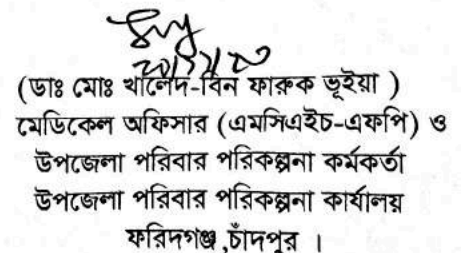 (ডাঃ মোঃ খালেদ-বিন ফারুক ভূইয়া )
মেডিকেল অফিসার (এমসিএইচ-এফপি) ও
উপজেলা পরিবার পরিকল্পনা কর্মকর্তা
উপজেলা পরিবার পরিকল্পনা কার্যালয়
ফরিদগঞ্জ ,চাঁদপুর ।